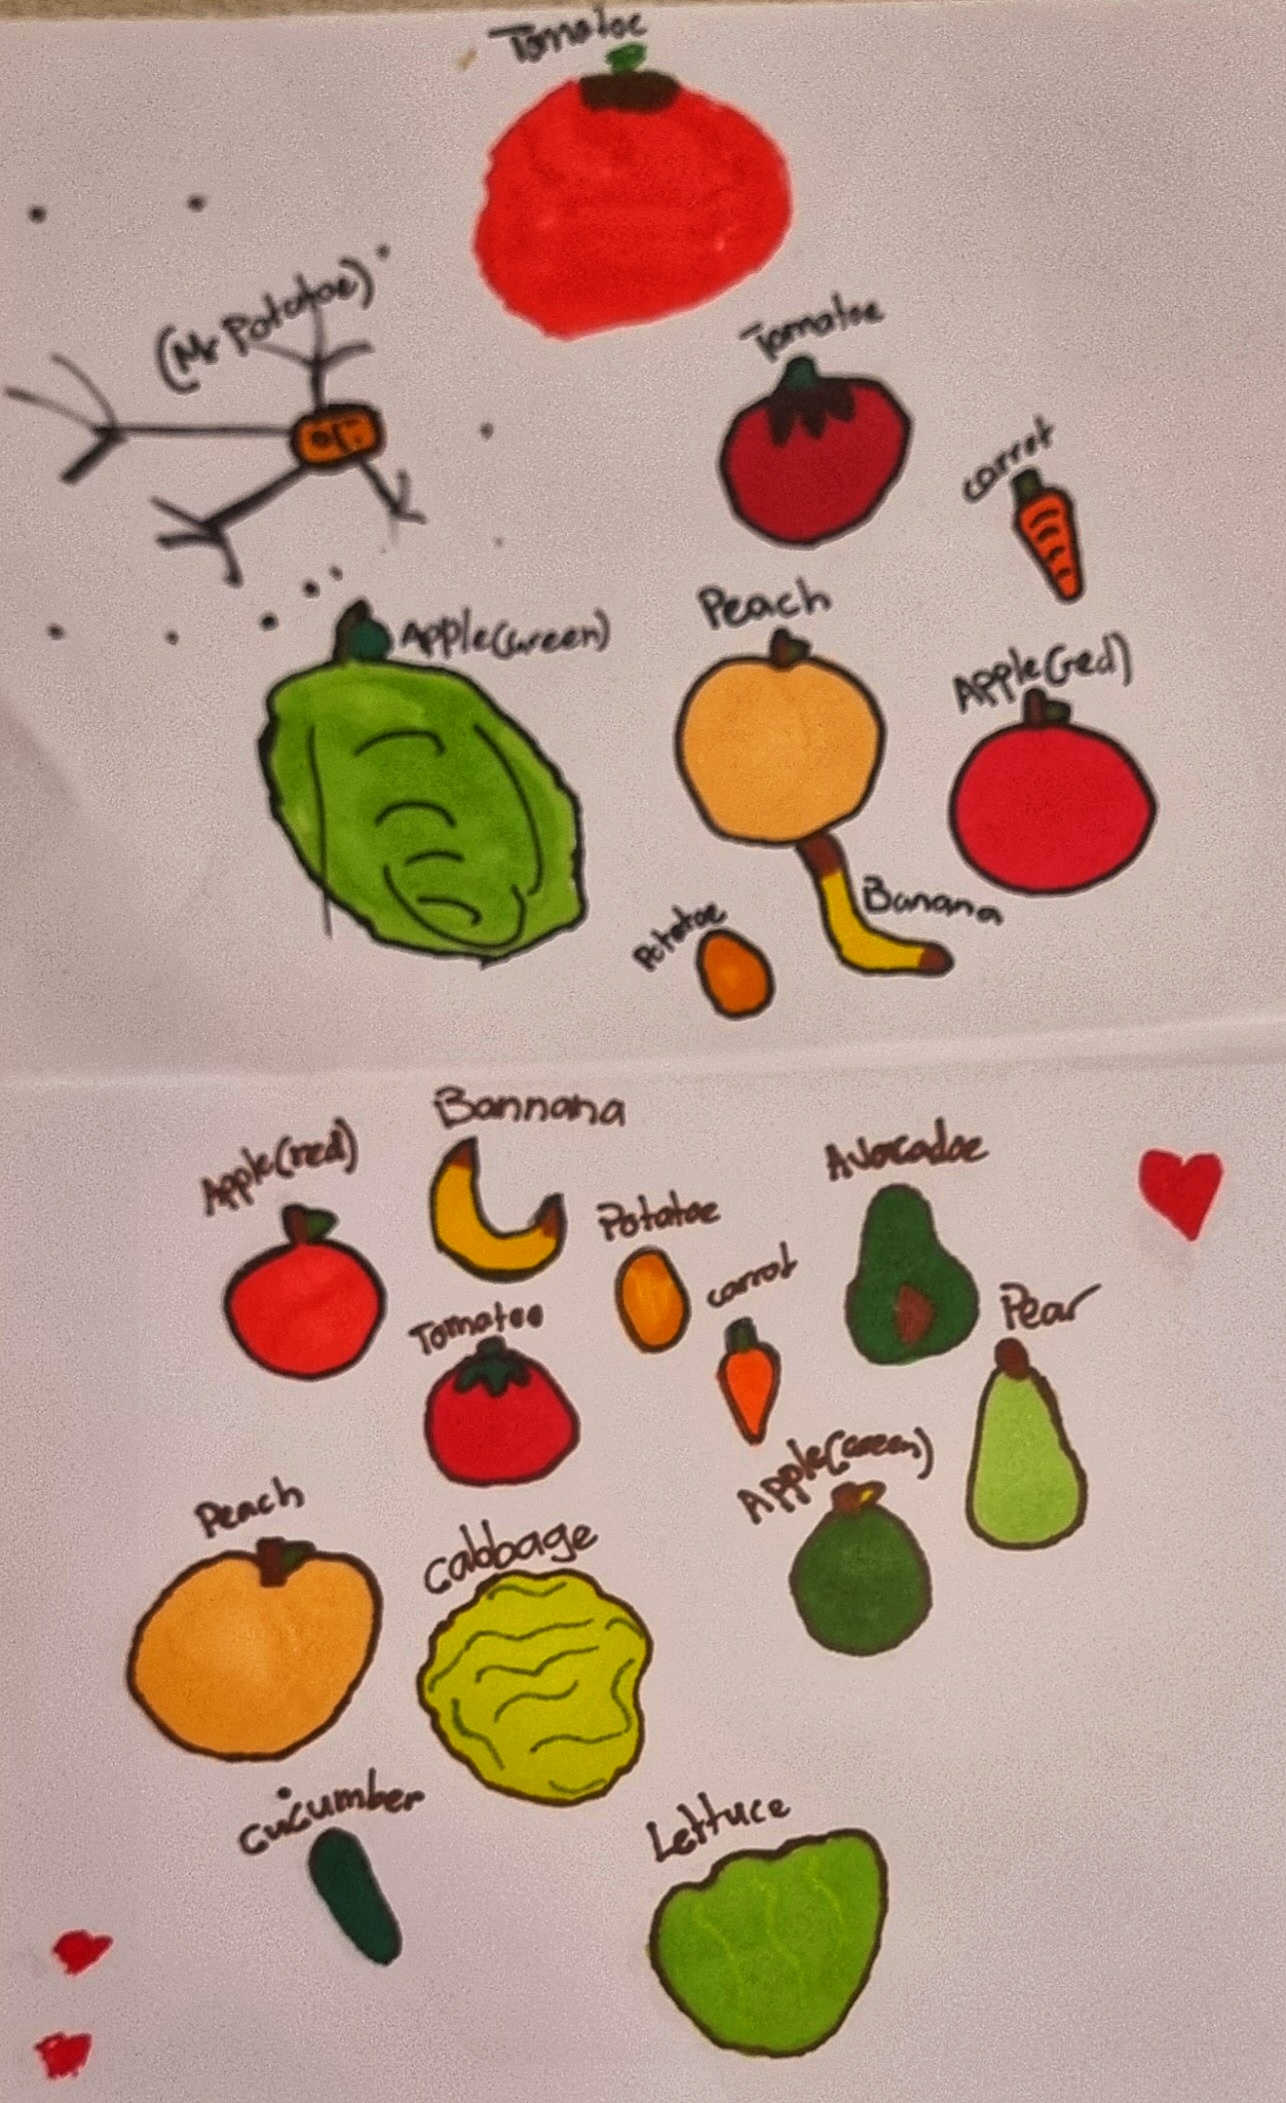 Tomatoe
(Mr Potatoe)
Tomatoe
carrot
Apple(Green)
Peach
Apple(red)
Banana
Potatoe
Bannana
Apple(red)
Avocadoe
Potatoe
carrot
Tomatoe
Pear
Apple(Green)
Peach
Cabbage
Cucumber
Lettuce